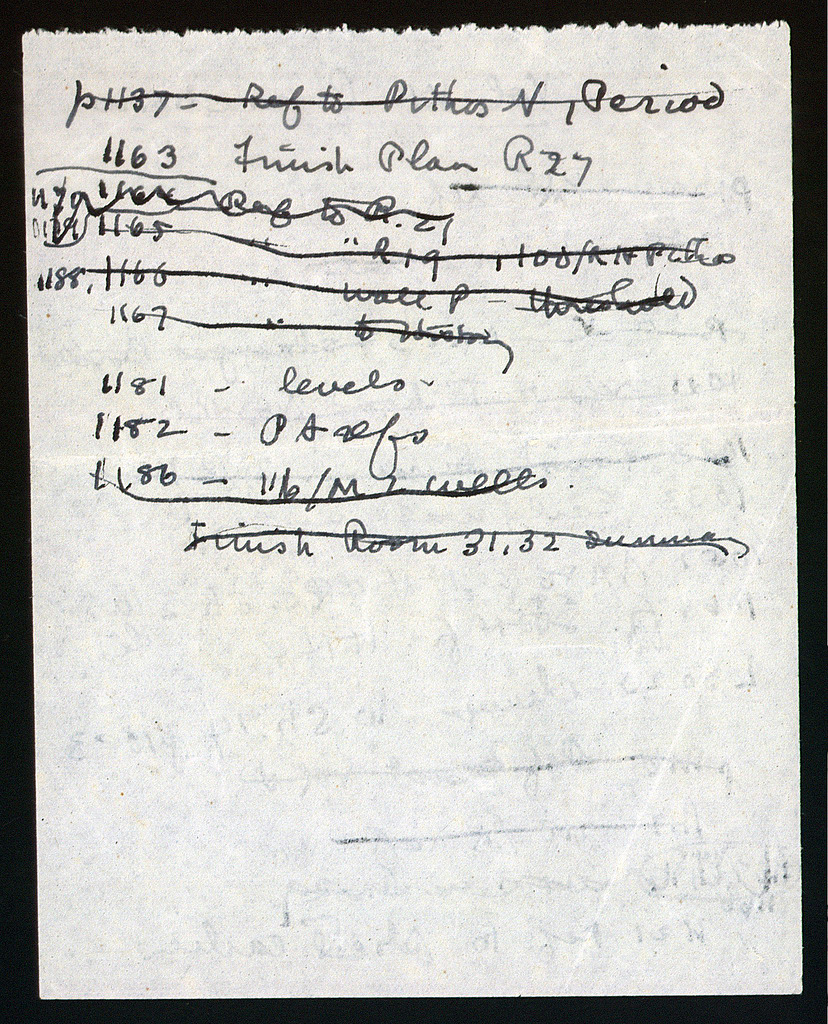 p1137 - Ref to Pithos N, Period
1163 Finish Plan R27
1170 1164 Ref to R.27
1165 " " R19, 100/RH Pithos
1188, 1166 " Wall P - threshold
1167 " to
1181 - levels -
1182 - PA refs
1186 - 116/M2 wells.
Finish Room 31, 32 summary